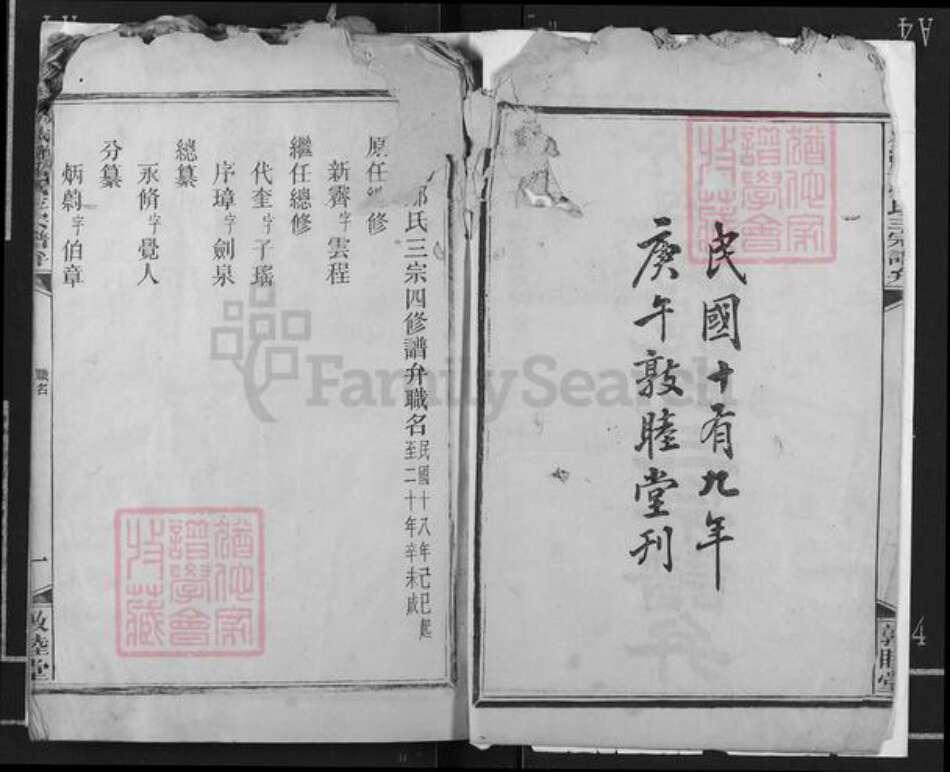 民國十有九年
庚午敦睦堂刊
氏三宗四修譜弁職名 民國十八年己巳起至二十年辛未成
原任總修
新霽字雲程
繼任總修
代奎字子瑤
序璋字劍泉
總纂
永脩字覺人
分纂
炳蔚字伯章
職名
一
敦睦堂
氏三宗譜弁
敦睦堂
猶他家譜學會收藏
猶他家譜學會收藏
FamilySearch
A4